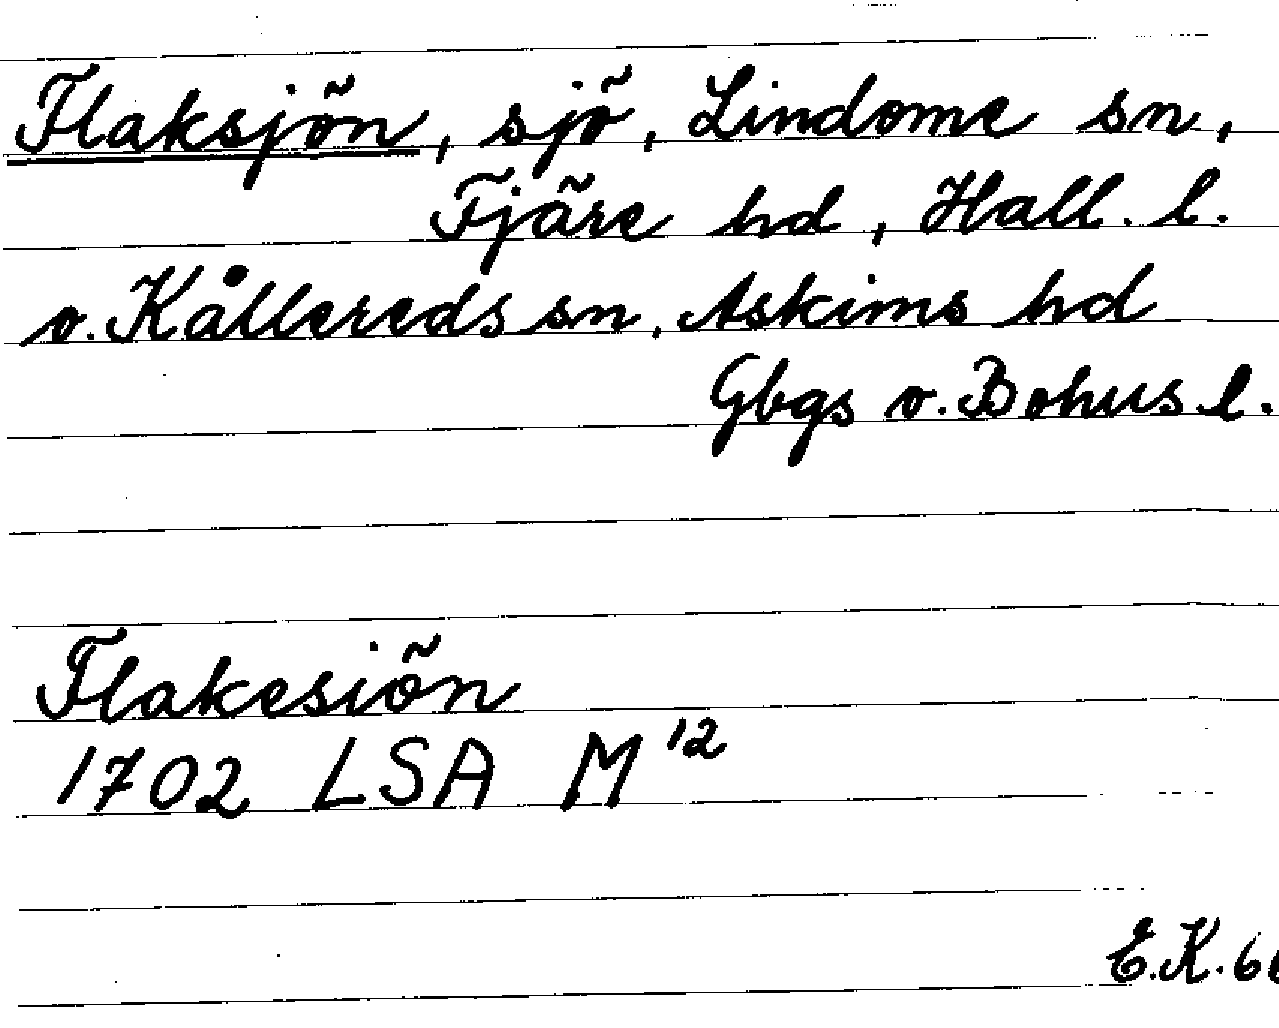 Flaksjön, sjö, Lindome sn,
Fjäre hd, Hall. l.
o. Kållereds sn, Askims hd
Gbgs o. Bohus l.
Flakesiön
1702 LSA M 12
E.K.